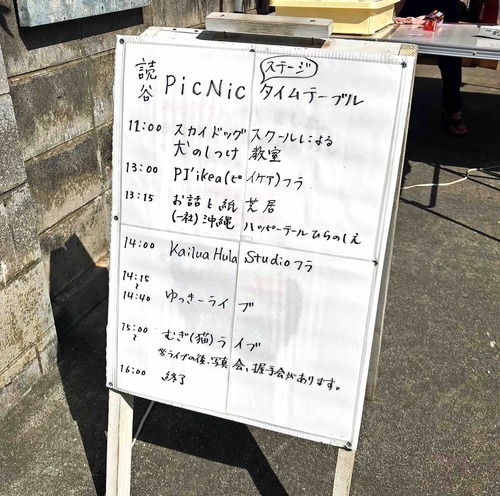 読谷 PicNic ステージ タイムテーブル
11:00 スカイドッグスクールによる
犬のしつけ 教室
13:00 PI'ikea(ピイケア)フラ
13:15 お話と紙芝居
(一社)沖縄ハッピーテールひらのしえ
14:00 Kailua Hula Studio フラ
14:15
〜
14:40 ゆっきーライブ
15:00 むぎ(猫)ライブ
〜 ※ライブの後、写真会、握手会があります。
16:00 終了